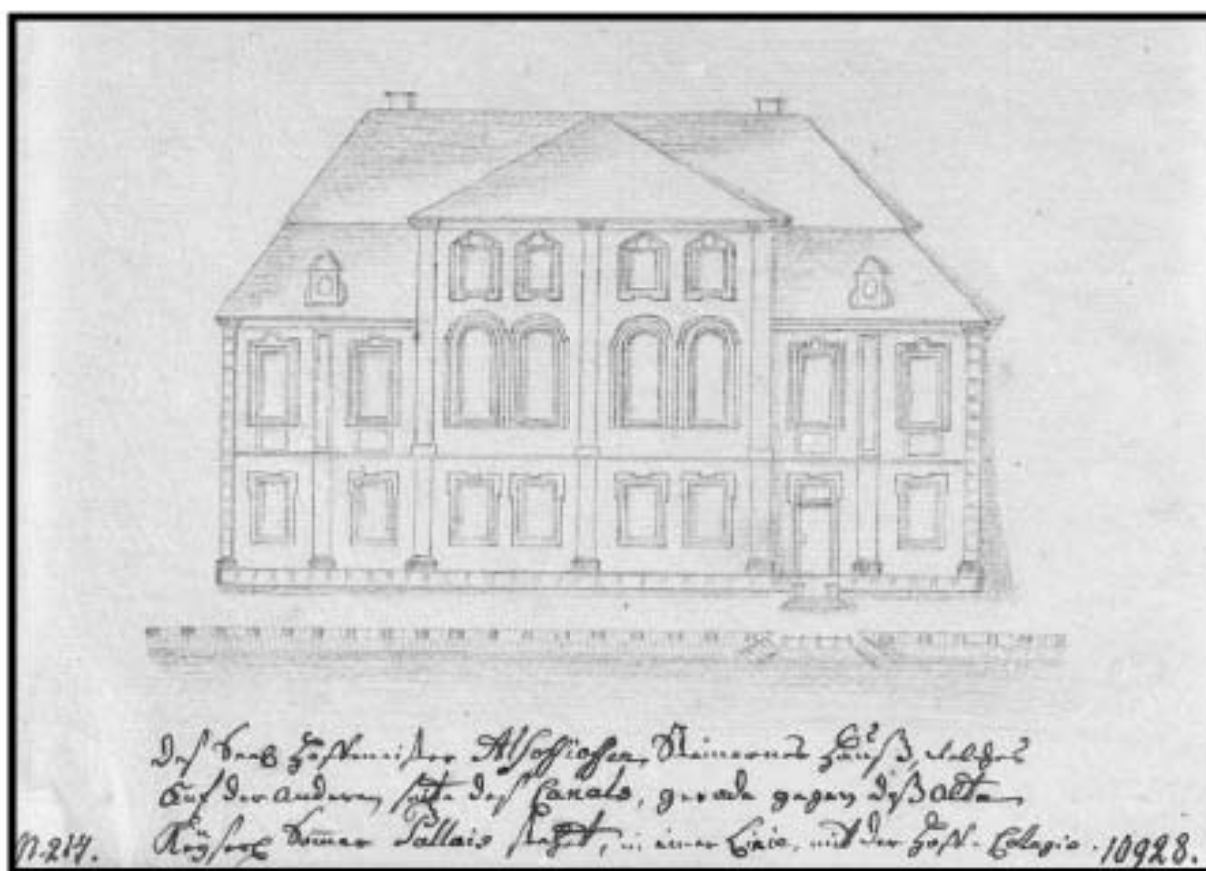 Deß Herrn Hoffmeister Alsoffioffen, Steinernes Hauß, welches
auf der anderen seite deß Canals, gerade gegen diß alte
Käyserl Somer Pallais stehet, in einer Linie, mit der Hoff-Colegie.
N. 217. 10928.